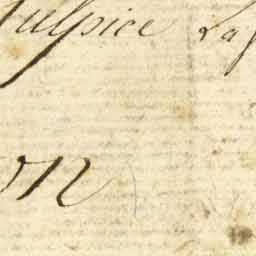 ulpice La
on